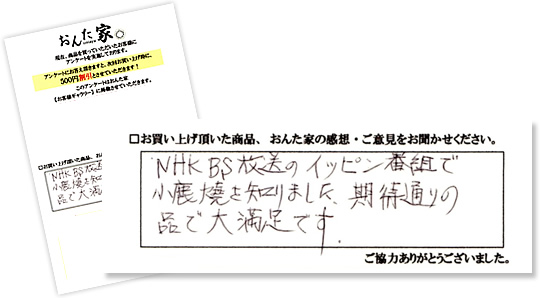 おんた家
現在、商品を買っていただいたお客様に
アンケートを実施しております。
アンケートにお答え頂きますと、次回お買い上げ時に、
500円割引とさせていただきます!
このアンケートはおんた家
【お客様ギャラリー】に掲載させていただきます。
□お買い上げ頂いた商品、おん
NHK BS放送の
小鹿焼を知
品で大満
□お買い上げ頂いた商品、おんた家の感想・ご意見をお聞かせください。
NHK BS放送のイッピン番組で
小鹿焼を知りました、期待通りの
品で大満足です.
ご協力ありがとうございました。